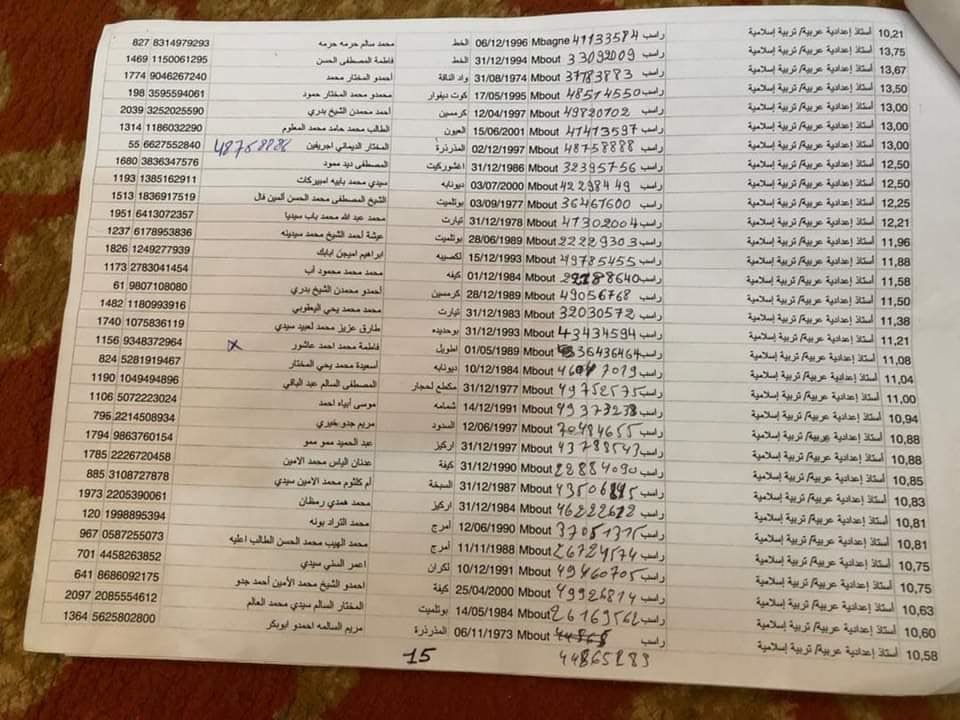 827 8314979293 محمد سالم حرمه حرمه الخط 06/12/1996 Mbagne 41133584 راسب أستاذ إعدادية عربية/ تربية إسلامية 10,21
1469 1150061295 فاطمة المصطفى الحسن الخط 31/12/1994 Mbout 33092009 راسب أستاذ إعدادية عربية/ تربية إسلامية 13,75
1774 9046267240 أحمدو المختار محمد واد الناقة 31/08/1974 Mbout 37783883 راسب أستاذ إعدادية عربية/ تربية إسلامية 13,67
198 3595594061 محمدو محمد المختار حمود كوت ديفوار 17/05/1995 Mbout 48514550 راسب أستاذ إعدادية عربية/ تربية إسلامية 13,50
2039 3252025590 أحمد محمدن الشيخ بدري كرمسين 12/04/1997 Mbout 49820702 راسب أستاذ إعدادية عربية/ تربية إسلامية 13,00
1314 1186032290 الطالب محمد حامد محمد المعلوم العيون 15/06/2001 Mbout 41413597 راسب أستاذ إعدادية عربية/ تربية إسلامية 13,00
55 6627552840 48758888 المختار الديماني اجريفين المذرذرة 02/12/1997 Mbout 48758888 راسب أستاذ إعدادية عربية/ تربية إسلامية 13,00
1680 3836347576 المصطفى ديد ممود اغشوركيت 31/12/1986 Mbout 32395756 راسب أستاذ إعدادية عربية/ تربية إسلامية 12,50
1193 1385162911 سيدي محمد بابيه امبيركات ديونابه 03/07/2000 Mbout 42298449 راسب أستاذ إعدادية عربية/ تربية إسلامية 12,50
1513 1836917519 الشيخ المصطفى محمد الحسن ألمين فال بوتلميت 03/09/1977 Mbout 36467600 راسب أستاذ إعدادية عربية/ تربية إسلامية 12,25
1951 6413072357 محمد عبد الله محمد باب سيديا تيارت 31/12/1978 Mbout 47302004 راسب أستاذ إعدادية عربية/ تربية إسلامية 12,21
1237 6178953836 عيشة أحمد الشيخ محمد سيدينه بوتلميت 28/06/1989 Mbout 22229303 راسب أستاذ إعدادية عربية/ تربية إسلامية 11,96
1826 1249277939 ابراهيم اميجن ابابك لكصيبه 15/12/1993 Mbout 49785455 راسب أستاذ إعدادية عربية/ تربية إسلامية 11,88
1173 2783041454 محمد محمد محمود آب كيفه 01/12/1984 Mbout راسب أستاذ إعدادية عربية/ تربية إسلامية 11,58
61 9807108080 أحمدو محمدن الشيخ بدري كرمسين 28/12/1989 Mbout 49056768 راسب أستاذ إعدادية عربية/ تربية إسلامية 11,50
1482 1180993916 محمد محمد يحي اليعقوبي تيارت 31/12/1983 Mbout 32030572 راسب أستاذ إعدادية عربية/ تربية إسلامية 11,38
1740 1075836119 طارق عزيز محمد لعبيد سيدي بوحديده 31/12/1993 Mbout 43434594 راسب أستاذ إعدادية عربية/ تربية إسلامية 11,21
1156 9348372964 x فاطمة محمد احمد عاشور اطويل 01/05/1989 Mbout 36436464 راسب أستاذ إعدادية عربية/ تربية إسلامية 11,08
824 5281919467 أسعيدة محمد يحي المختار ديونابه 10/12/1984 Mbout راسب أستاذ إعدادية عربية/ تربية إسلامية 11,04
1190 1049494896 المصطفى السالم عبد الباقي مكطع لحجار 31/12/1977 Mbout 49752575 راسب أستاذ إعدادية عربية/ تربية إسلامية 11,00
1106 5072223024 موسى أبياه احمد شمامه 14/12/1991 Mbout 49373238 راسب أستاذ إعدادية عربية/ تربية إسلامية 10,94
795 2214508934 مريم جدو خيري السدود 12/06/1997 Mbout 70484655 راسب أستاذ إعدادية عربية/ تربية إسلامية 10,88
1794 9863760154 عبد الحميد ممو ممو اركيز 31/12/1997 Mbout 43788543 راسب أستاذ إعدادية عربية/ تربية إسلامية 10,88
1785 2226720458 عدنان الياس محمد الامين كيفة 31/12/1990 Mbout 28884090 راسب أستاذ إعدادية عربية/ تربية إسلامية 10,85
885 3108727878 أم كلثوم محمد الامين سيدي السبخة 31/12/1987 Mbout راسب أستاذ إعدادية عربية/ تربية إسلامية 10,83
1973 2205390061 محمد همدي رمظان اركيز 31/12/1984 Mbout راسب أستاذ إعدادية عربية/ تربية إسلامية 10,81
120 1998895394 محمد التراد بونه أمرج 12/06/1990 Mbout 37051315 راسب أستاذ إعدادية عربية/ تربية إسلامية 10,81
967 0587255073 محمد الهيب محمد الحسن الطالب اعليه أمرج 11/11/1988 Mbout 26724574 راسب أستاذ إعدادية عربية/ تربية إسلامية 10,75
701 4458263852 اعمر السني سيدي لكران 10/12/1991 Mbout 49460705 راسب أستاذ إعدادية عربية/ تربية إسلامية 10,75
641 8686092175 احمدو الشيخ محمد الأمين أحمد جدو كيفة 25/04/2000 Mbout 49926814 راسب أستاذ إعدادية عربية/ تربية إسلامية 10,63
2097 2085554612 المختار السالم سيدي محمد العالم بوتلميت 14/05/1984 Mbout 26169562 راسب أستاذ إعدادية عربية/ تربية إسلامية 10,60
1364 5625802800 مريم السالمه احمدو ابوبكر المذرذرة 06/11/1973 Mbout راسب أستاذ إعدادية عربية/ تربية إسلامية 10,58
44865289
15